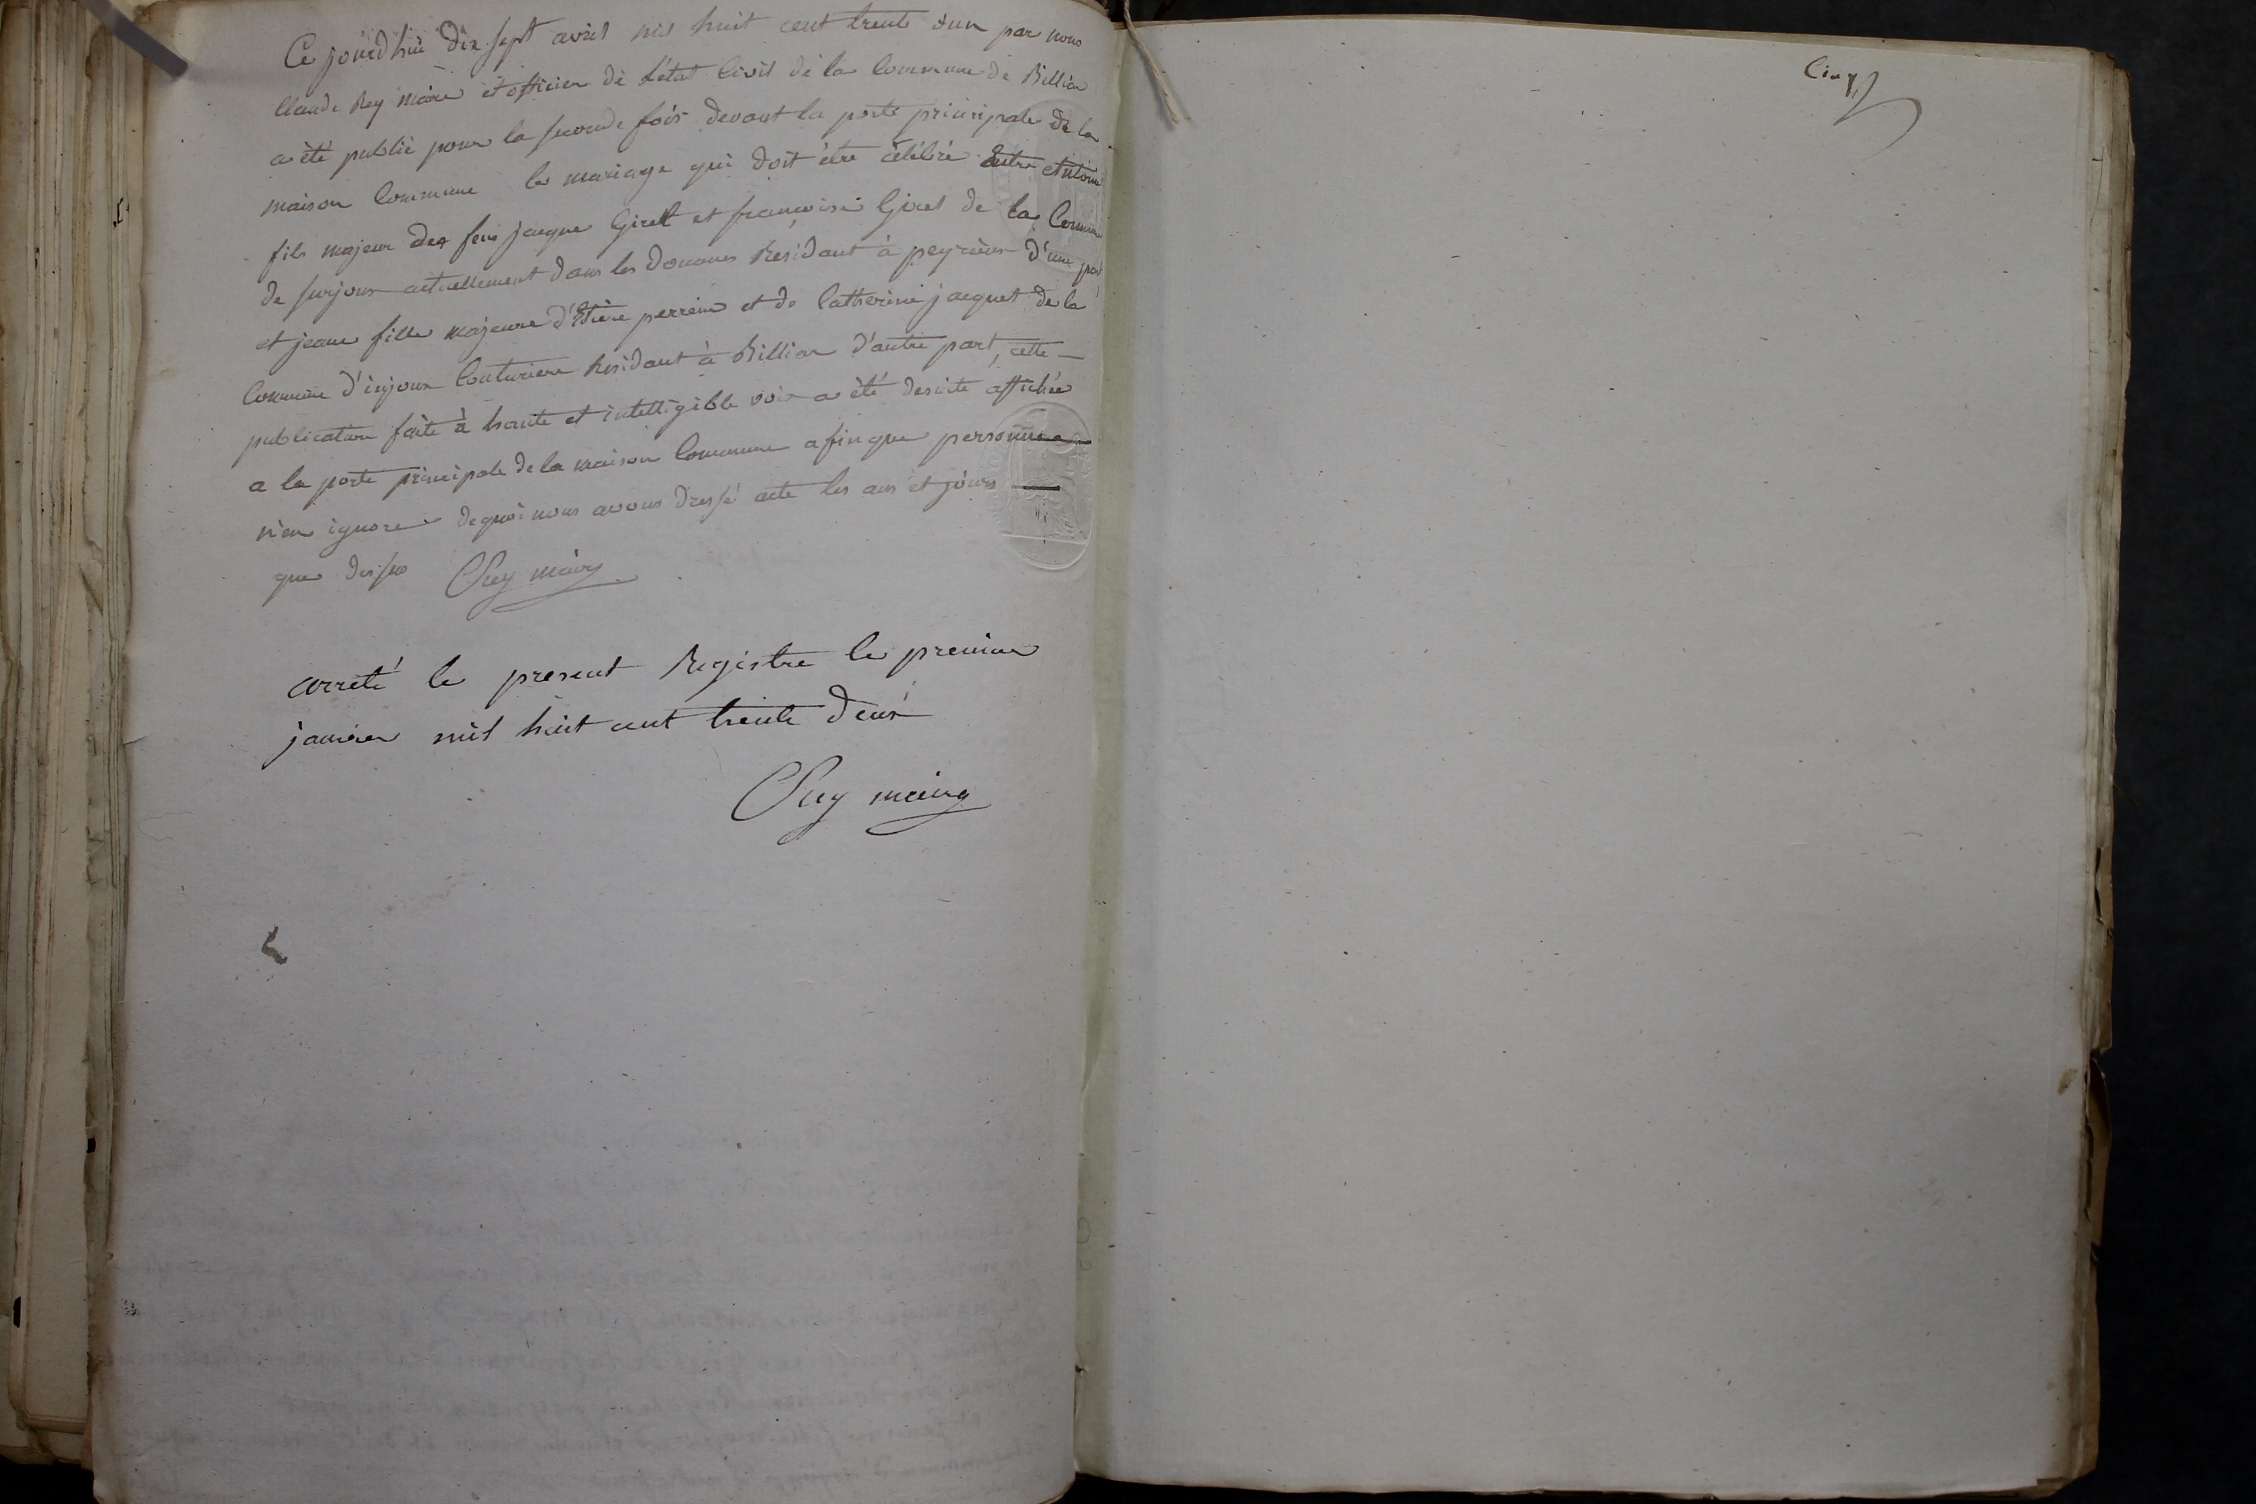 Ce jourd'hui dix sept avril mil huit cent trente d'un par nous
Claude Rey maire et officier de l'état Civil de la Commune de Billiat
a été publié pour la seconde fois devant la porte principale de la
maison Commune le mariage qui doit être célébré Entre Antoine
fils majeur des feus jacque Girel et francoise Girel de la Commune
de surjoux actuellement dans les Douanes Résidant à peyrieux d'une part
et jeanne fille majeure d' perrin et de Catherine jacquet de la
Commune d'injoux Couturiere Résidant à Billiat d'autre part, cette
publication faite à haute et intelligible voix a été desuite affichée
a la porte principale de la maison Commune afin que personne
n'en ignore dequoi nous avons dressé acte les ans et jours
que dessus CRey maire
arrété le present Registre le premier
janvier mil huit cent trente deux
CRey maire
Cinq